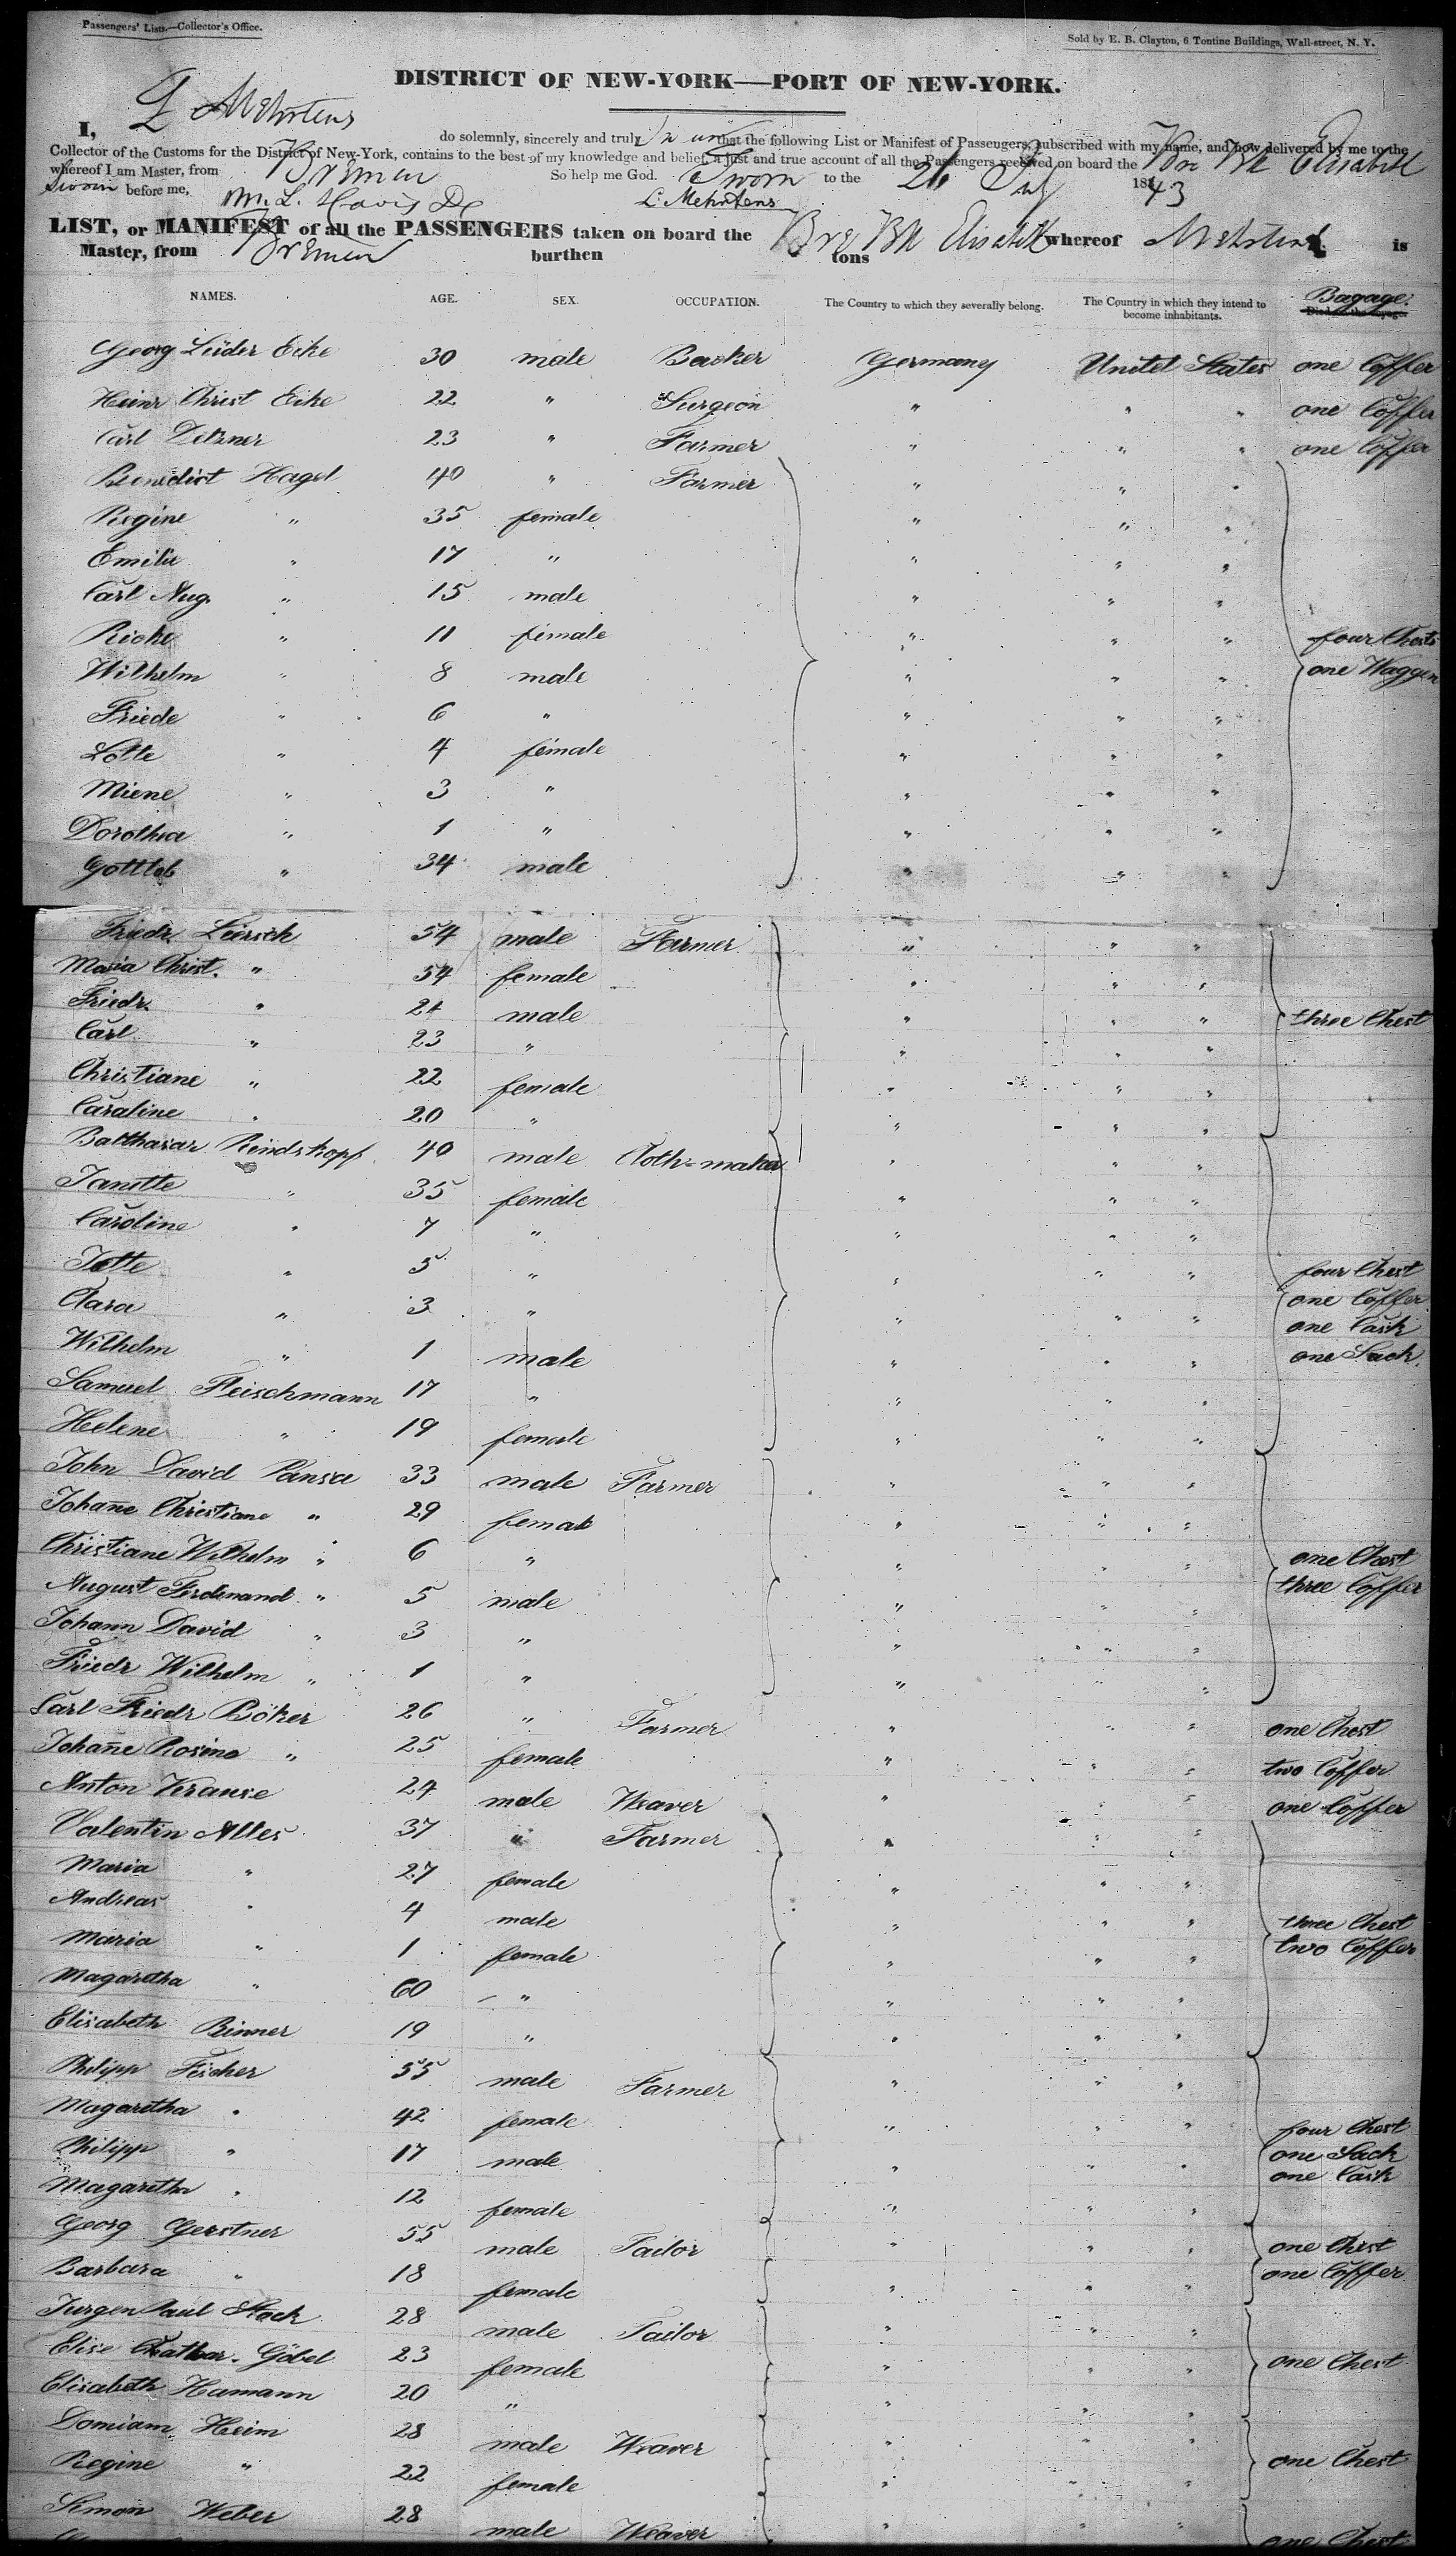 Passengers' Lists.—Collector's Office.
Sold by E. B. Clayton, 6 Tontine Buildings, Wall-street, N. Y.
DISTRICT OF NEW-YORK—PORT OF NEW-YORK.
I, L Mehrtens do solemnly, sincerely and truly that the following List or Manifest of Passengers, subscribed with my name, and now delivered by me to the
Collector of the Customs for the District of New-York, contains to the best of my knowledge and belief, a just and true account of all the Passengers received on board the Bre Bk Elisabeth
whereof I am Master, from Bremen So help me God.
Sworn to the 26 1843
Sworn before me, L. Mehrtens
LIST, or MANIFEST of all the PASSENGERS taken on board the Bre Bk Elisabeth whereof Mehrtens is
Master, from Bremen burthen tons
NAMES. AGE. SEX. OCCUPATION. The Country to which they severally belong. The Country in which they intend to become inhabitants. Bagage.
Georg Lüder Eike 30 male Backer Germany Unitet States one Coffer
Heinr Christ Eike 22 " Surgeon " " " one Coffer
Carl Ditzner 23 " Farmer " " " one Coffer
Benedict Hagel 40 " Farmer " " "
Regine " 35 female " " "
Emilie " 17 " " " "
Carl Aug. " 15 male " " "
Ricke " 11 female " " " four Chests
Wilhelm " 8 male " " " one Waggen
Friede " 6 " " " "
Lotte " 4 female " " "
Miene " 3 " " " "
Dorothea " 1 " " " "
Gottlob " 34 male " " "
Friedr. Liersch 54 male Farmer " " "
Maria Christ. " 54 female " " "
Friedr. " 24 male " " " three Chest
Carl " 23 " " " "
Christiane " 22 female " " "
Caroline " 20 " " " "
Balthasar Rindskopf 40 male Cloth-maker " " "
Janette " 35 female " " "
Caroline " 7 " " " "
Jette " 5 " " " " four Chest
Clara " 3 " " " " one Coffer
one Cask
Wilhelm " 1 male " " " one Sack
Samuel Fleischmann 17 " " " "
Helene " 19 female " " "
John David Pansa 33 male Farmer " " "
Johañe Christiane " 29 female " " "
Christiane Wilhelm " 6 " " " " one Chest
August Ferdinand " 5 male " " " three Coffer
Johann David " 3 " " " "
Friedr Wilhelm " 1 " " " "
Carl Friedr Böker 26 " Farmer " " " one Chest
Johañe Rosine " 25 female " " " two Coffer
Anton Krause 24 male Weaver " " " one Coffer
Valentin Altes 37 " Farmer " " "
Maria " 27 female " " "
Andreas " 4 male " " " three Chest
Maria " 1 female " " " two Coffer
Magaretha " 60 " " " "
Elisabeth Binner 19 " " " "
Philipp Fischer 55 male Farmer " " "
Magaretha " 42 female " " " four Chest
Philipp " 17 male " " " one Sack
one Cask
Magaretha " 12 female " " "
Georg Gerstner 55 male Tailor " " " one Chest
Barbara " 18 female " " " one Coffer
Jurgen Paul Stock 28 male Tailor " " "
Elise Cathar. Göbel 23 female " " " one Chest
Elisabeth Hamann 20 " " " "
Domiam Heim 28 male Weaver " " "
Regine " 22 female " " " one Chest
Simon Weber 28 male Weaver " " "
one Chest